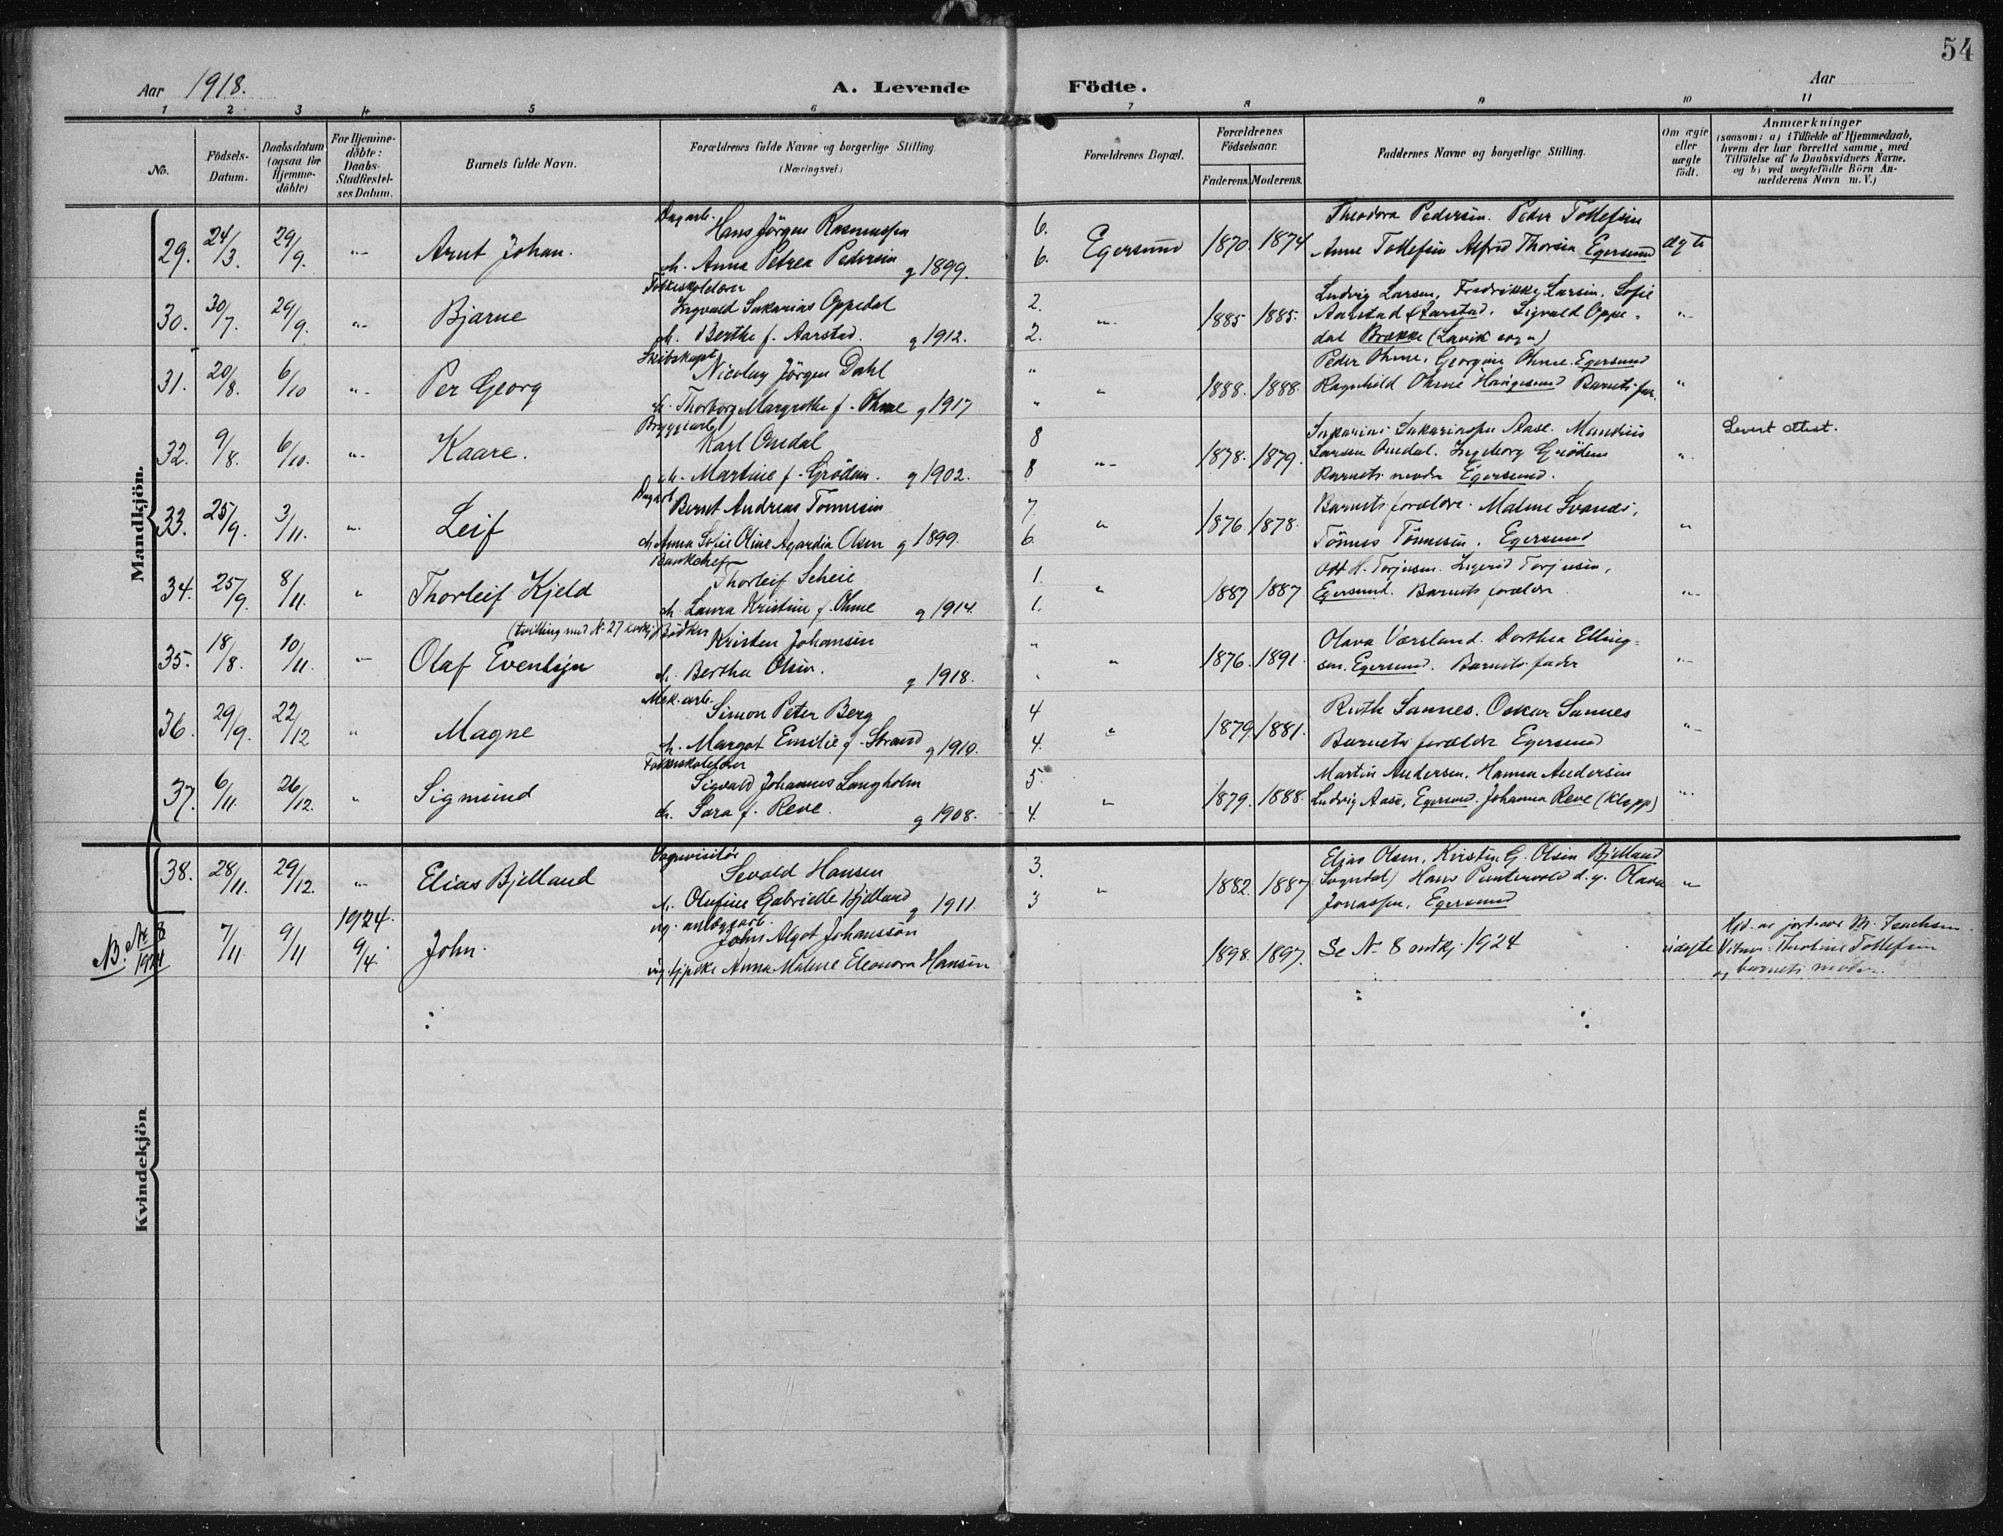 54
Aar 1918. A. Levende Födte. Aar
1 2 3 4 5 6 7 8 9 10 11
No. Födsels-Datum. Daabsdatum (ogsaa for Hjemme-döbte) For Hjemme-döbte: Daabs-Stadfæstel-ses Datum. Barnets fulde Navn. Forældrenes fulde Navne og borgerlige Stilling. (Næringsvei.) Forældrenes Bopæl. Forældrenes Födselsaar. Faderens. Moderens. Faddernes Navne og borgerlige Stilling. Om ægte eller uægte födt. Anmærkninger
(saasom: a) i Tilfælde af Hjemmedaab, hvem der har forrettet samme, med Tilföielse af to Daabsvidners Navne, og b) ved uægtefödte Börn An-melderens Navn m. V.)
Mandkjön.
Dagarb. Hans Jörgen Rasmussen 6. Theodora Pedersen. Peder Tollefsen
29. 24/3 29/9. "- Arnt Johan. h. Anna Petrea Pedersen g 1899. 6. Egersund 1870. 1874 Anne Tollefsen Alfred Thorsen Egersund ægte
Folkeskolelærer
Ingvald Sakarias Oppedal 2. Ludvig Larsen, Fredrikke Larsen, Sofie
30. 30/7. 29/9. "- Bjarne "- 1885. 1885. Aarstad Aarstad. Sigvald Oppe- "-
h. Berthe f. Aarstad. g 1912. 2. dal Brække (Lavik sogn)
Skibskapt. Nicolay Jörgen Dahl " Peder Ohme, Georgine Ohme Egersund
31. 20/8. 6/10 "- Per Georg " 1888. 1888. Ragnhild Ohme Haugesund Barnets far. "
h. Thorborg Margrethe f. Ohme g 1917 "
Bryggearb. Karl Omdal 8 Sakarias Sakariassen Aase. Mandius
32. 9/8. 6/10. "- Kaare. "- 1878. 1879. Larsen Omdal. Ingeborg Grödem " Levert attest.
h. Martine f. Grödem. g 1902. 8 Barnets moder Egersund.
Dagarb. Bernt Andreas Tönnesen 7. Barnets forældre. Malene Svanes,
33. 25/9. 3/11. "- Leif " 1876. 1878. "
h. Anna Sofie Oline Agardia Olsen g 1899. 6. Tönnes Tönnesen. Egersund
Bankchef Thorleif Scheie 1. Odd H. Torjusen. Ingerid Torjusen,
34. 25/9. 8/11. " Thorleif Kjeld " 1887 1887 Egersund. Barnets forældre "-
h. Laura Kristine f. Ohme g 1914. 1.
(tvilling med No 27 kvkj) Bödker Kristen Johansen " Olava Værsland. Dorthea Elling-
35. 18/8. 10/11. "- Olaf " 1876. 1891. sen. Egersund. Barnets fader "-
h. Bertha Olsen. g 1918. "
Mek. arb. Simon Peter Berg 4 Ruth Sannes. Oskar Sannes
36. 29/9. 22/12 " Magne " 1879. 1881. "
h. Margot Emilie f. Strand g 1910. 4. Barnets forældre Egersund
Folkeskolelærer Sigvald Johannes Langholm 5. Martin Andersen. Hanna Andersen
37. 6/11. 26/12. " Sigmund "- 1879. 1888. Ludvig Aase, Egersund. Johanna Reve (Klepp) "
h. Sara f. Reve. g 1908. 4.
Sevald Hansen 3. Elias Olsen, Kirsten G. Olsen Bjelland
38. 28/11. 29/12. "- Elias Bjelland " 1882. 1887. (Sogndal) Hans d.y. Olava "
h. Olufine Gabrielle Bjelland g 1911. 3 Jonassen, Egersund
1924. ug. anlægsarb. John Algot Johansson Hjd. av jordmor Isachsen
NB. No 8 1924 7/11 9/11 9/4. John. 1898. 1897. Se No 8 mdkj. 1924 uægte Vitner: Tollefsen
ug. tjpike Anna Malene Eleonora Hansen og barnets moder.
Kvindekjön